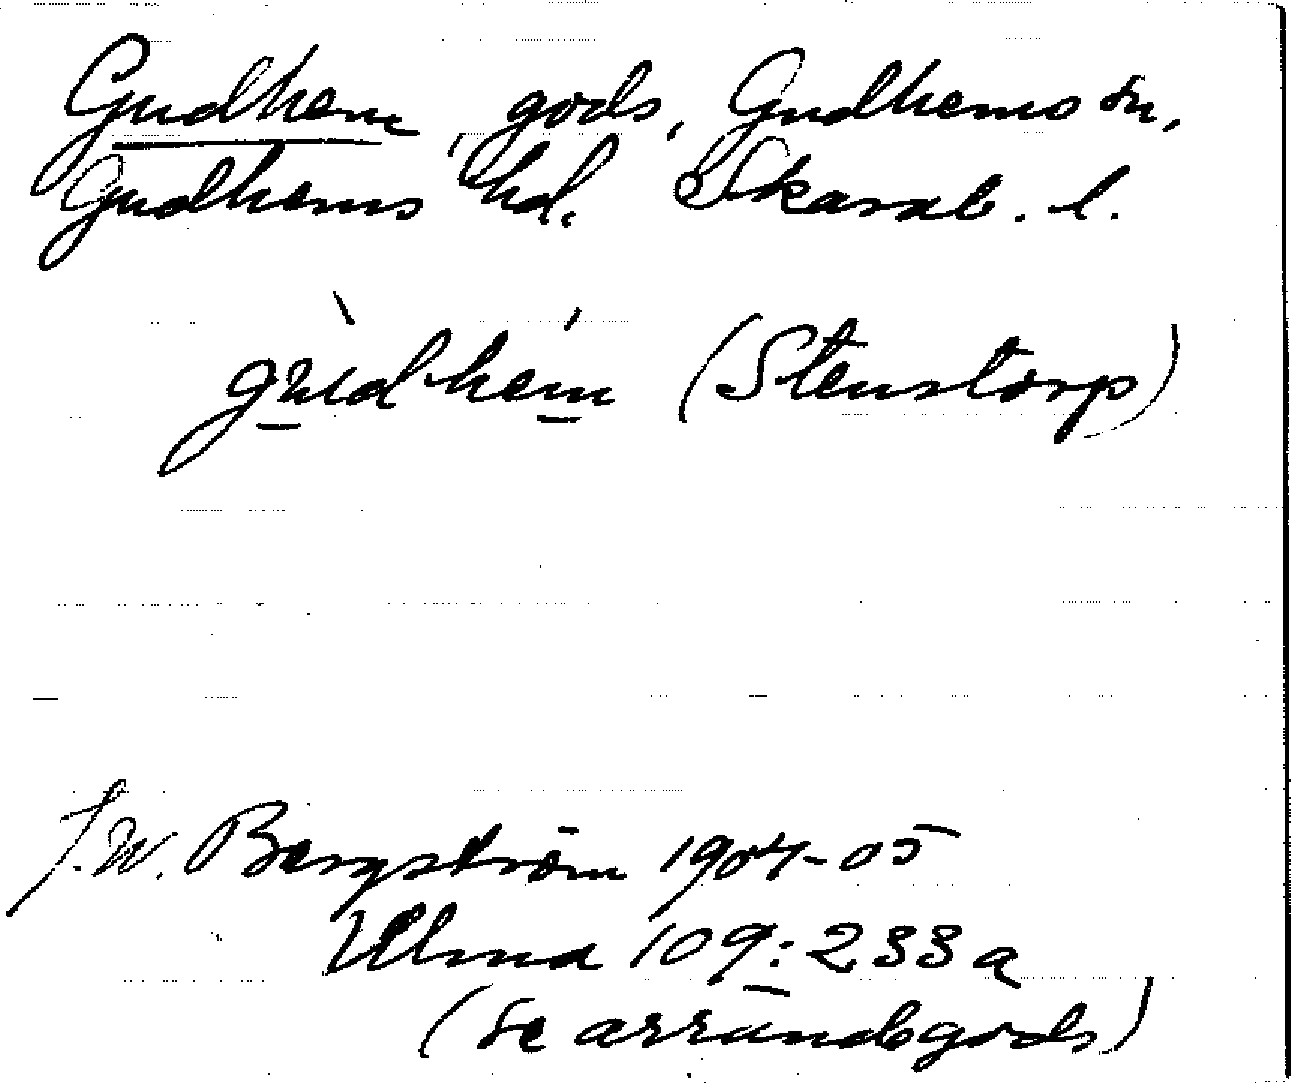 Gudhem, gods, Gudhems sn,
Gudhems hd. Skarab. l.
gùdhém (Stenstorp)
J. W. Bergström 1904-05
Ulma 109:233a
(Se arrändegods)